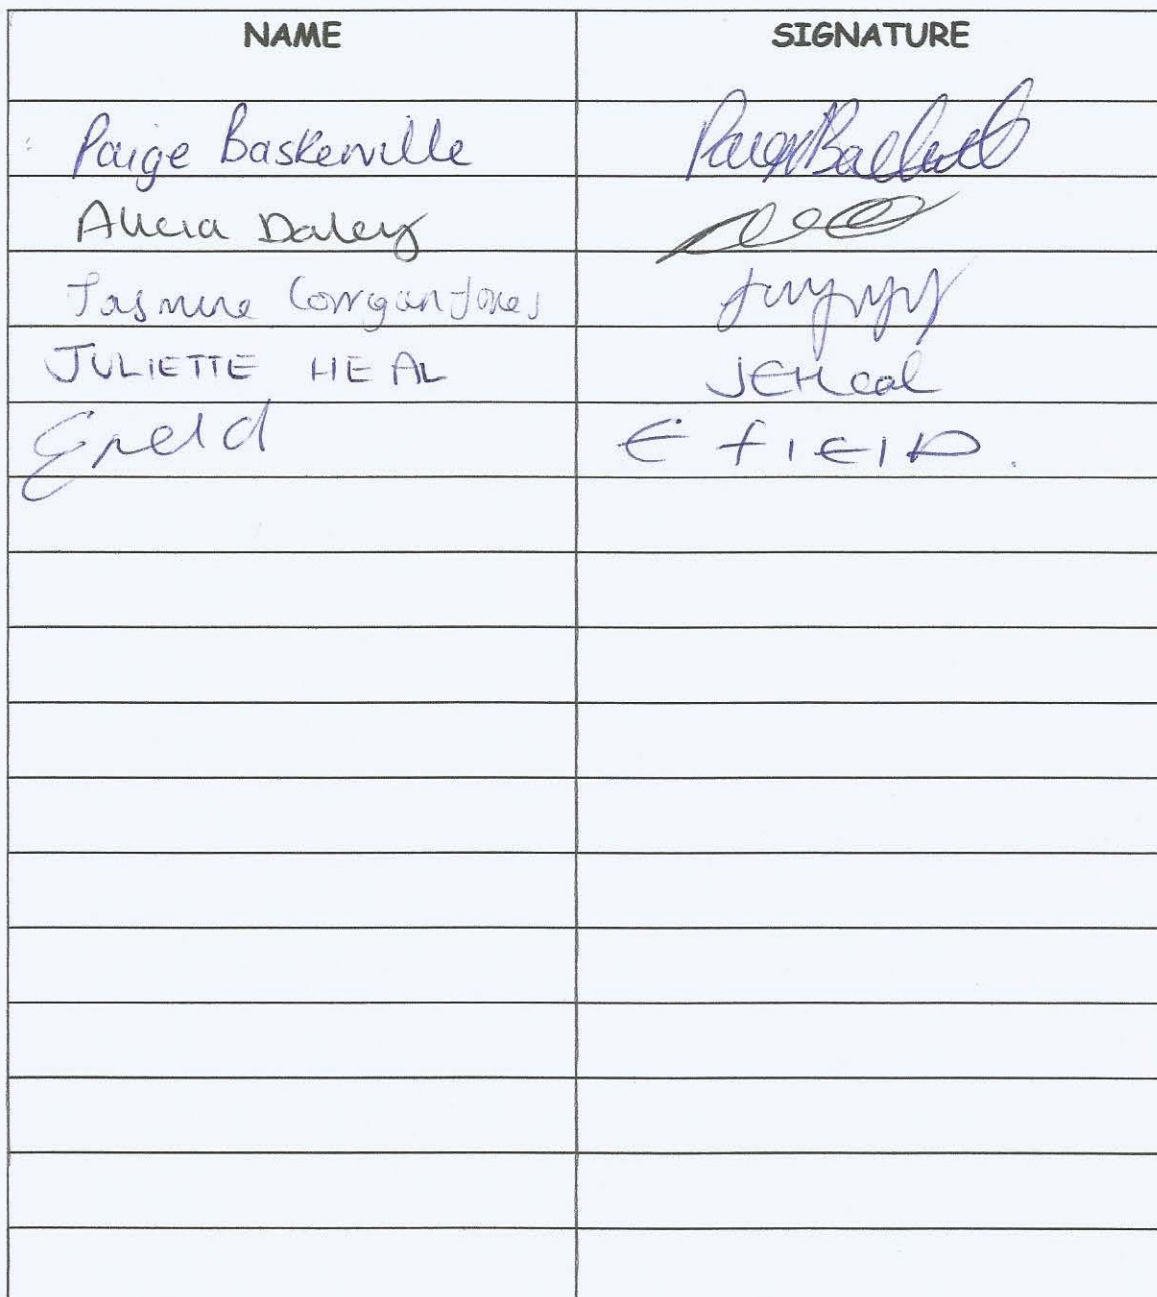 NAME SIGNATURE
Paige Baskerville
Alicia Daley
Jasmine Corrigan Jones
JULIETTE HEAL JEHeal
Efield E FIElD.